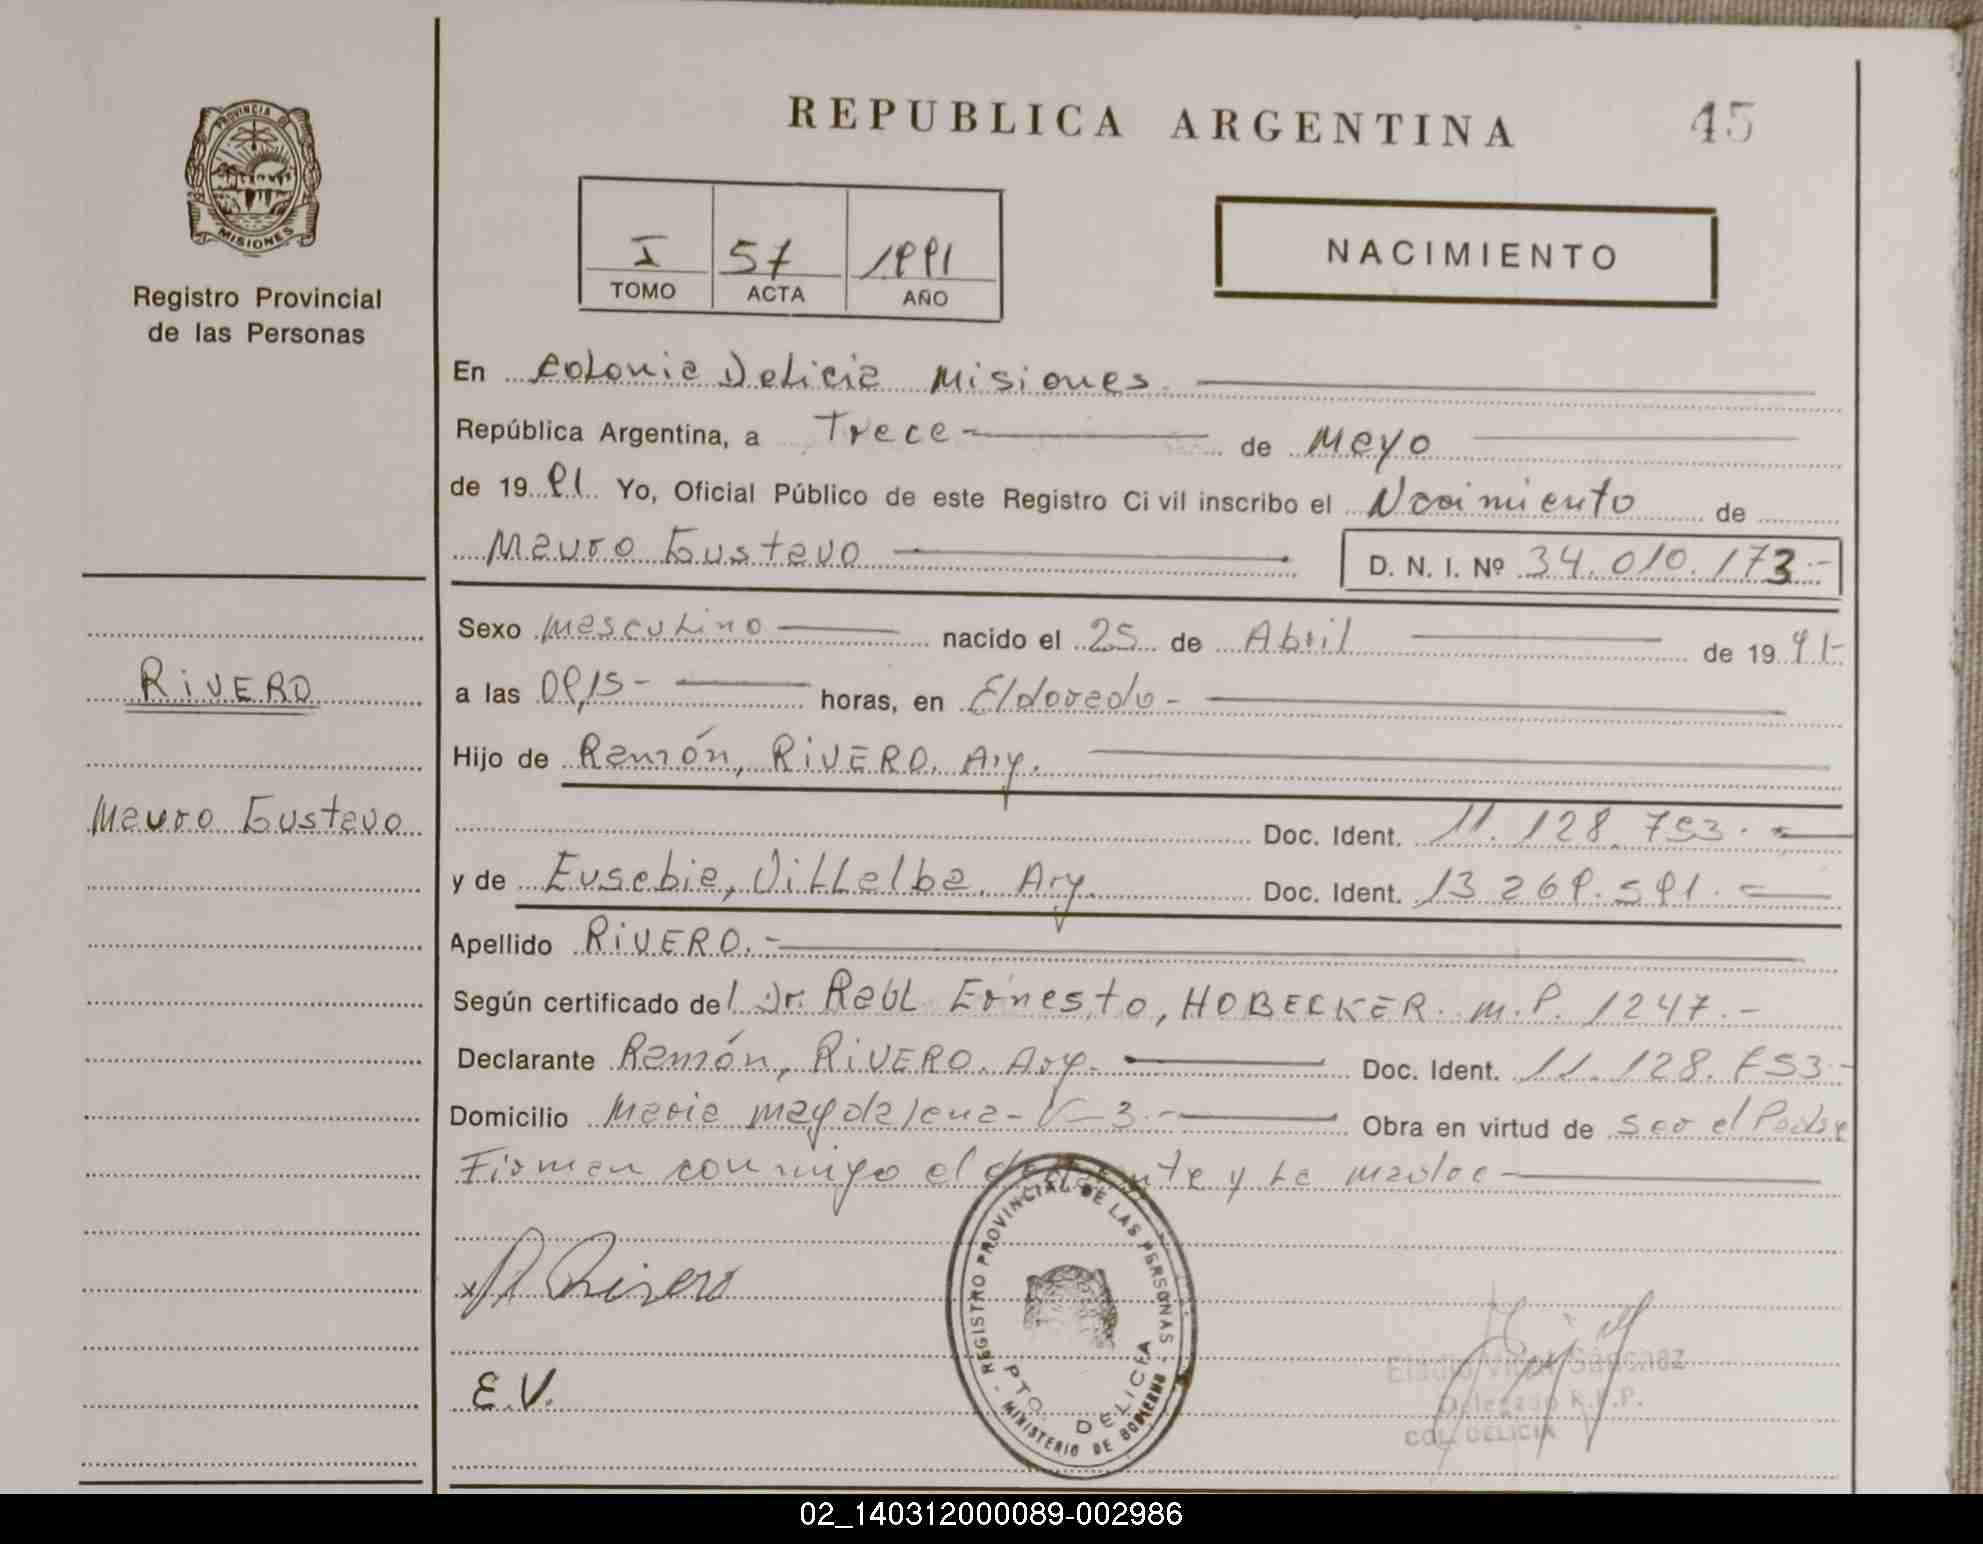 REPUBLICA ARGENTINA
45
PROVINCIA DE
MISIONES
Registro Provincial
de las Personas
I 57 1991
TOMO ACTA AÑO
NACIMIENTO
En Colonia Delicia Misiones
República Argentina, a Trece de Mayo
de 19 91 Yo, Oficial Público de este Registro Ci vil inscribo el Nacimiento de
Mauro Gustavo D. N. I. Nº 34.010.173.-
Sexo masculino nacido el 25 de Abril de 19 91-
RIVERO
a las 09,15- horas, en Eldorado-
Hijo de Ramón, RIVERO. Arg.
Mauro Gustavo
Doc. Ident. 11.128.753.-
y de Eusebia, Villalba. Arg. Doc. Ident. 13.269.591.-
Apellido RIVERO.-
Según certificado del Dr. Raúl Ernesto, HOBECKER. M.P. 1247.-
Declarante Ramón, RIVERO. Arg. Doc. Ident. 11.128.753.-
Domicilio Maria Magdalena- 3.- Obra en virtud de ser el Padre
Firman conmigo el y la madre
R Rivero
E.V.
REGISTRO PROVINCIAL DE LAS PERSONAS
PTO. DELICIA
MINISTERIO DE GOBIERNO
Sánchez
Delegado R.P.P.
COL. DELICIA
02_140312000089-002986